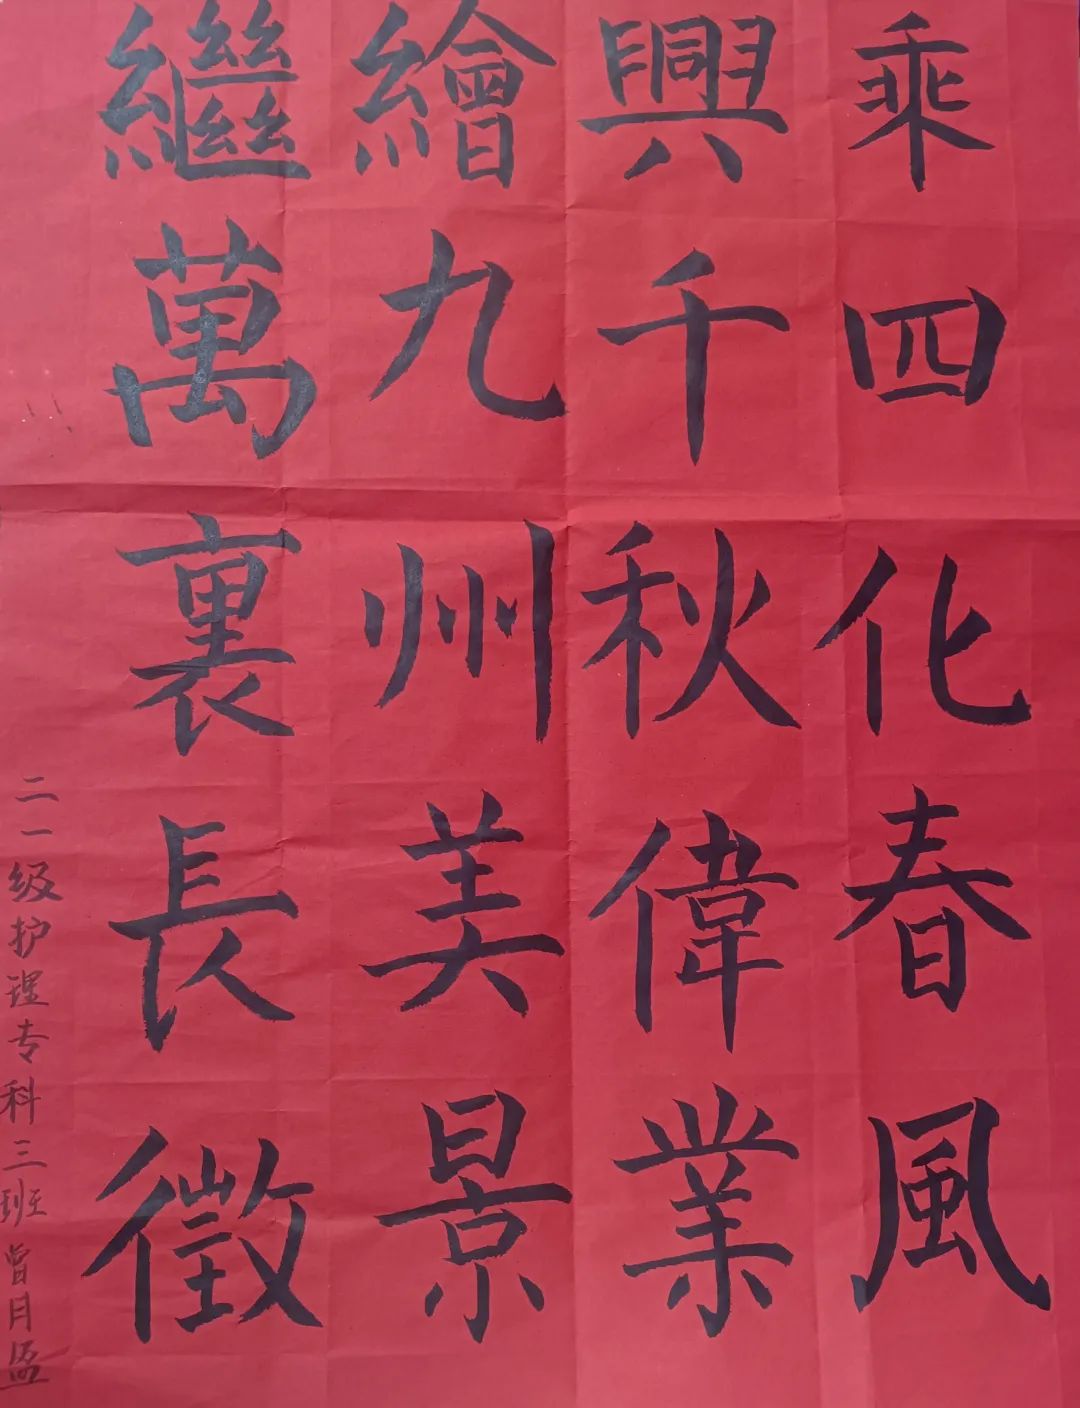 乘四化春風
興千秋偉業
繪九州美景
繼萬裏長徵
二一级护理专科三班曾月盈